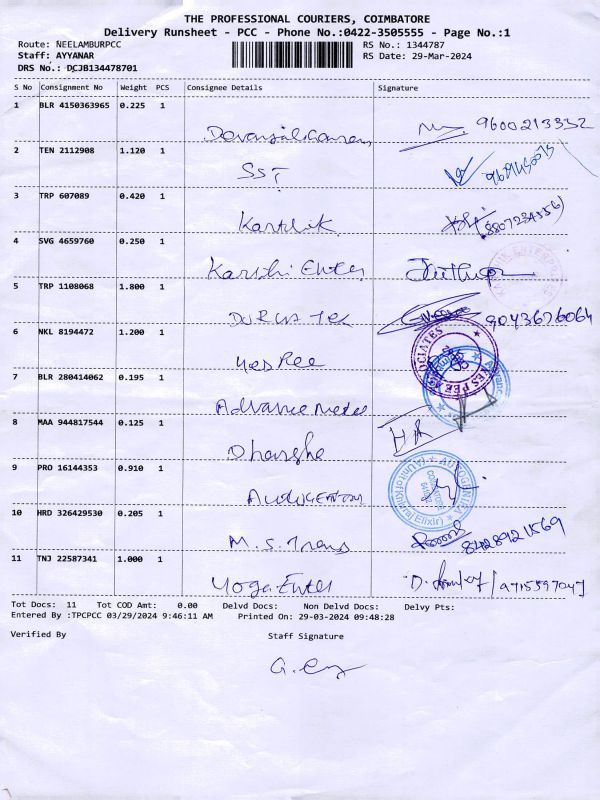 THE PROFESSIONAL COURIERS, COIMBATORE
Delivery Runsheet - PCC - Phone No.:0422-3505555 - Page No.:1
Route: NEELAMBURPCC RS No.: 1344787
Staff: AYYANAR RS Date: 29-Mar-2024
DRS No.: DCJB134478701
S No Consignment No Weight PCS Consignee Details Signature
1 BLR 4150363965 0.225 1
9600213332
2 TEN 2112908 1.120 1
SST
3 TRP 607089 0.420 1
Karthik
4 SVG 4659760 0.250 1
Karthi Enter
5 TRP 1108068 1.800 1
DURGA Tex 9043626064
6 NKL 8194472 1.200 1
Yes Pee
7 BLR 280414062 0.195 1
Advance
8 MAA 944817544 0.125 1
Dharsha
9 PRO 16144353 0.910 1
10 HRD 326429530 0.205 1
M.S. Trans 8428921569
11 TNJ 22587341 1.000 1
Yoga Enter 9715597047
Tot Docs: 11 Tot COD Amt: 0.00 Delvd Docs: Non Delvd Docs: Delvy Pts:
Entered By :TPCPCC 03/29/2024 9:46:11 AM Printed On: 29-03-2024 09:48:28
Verified By Staff Signature